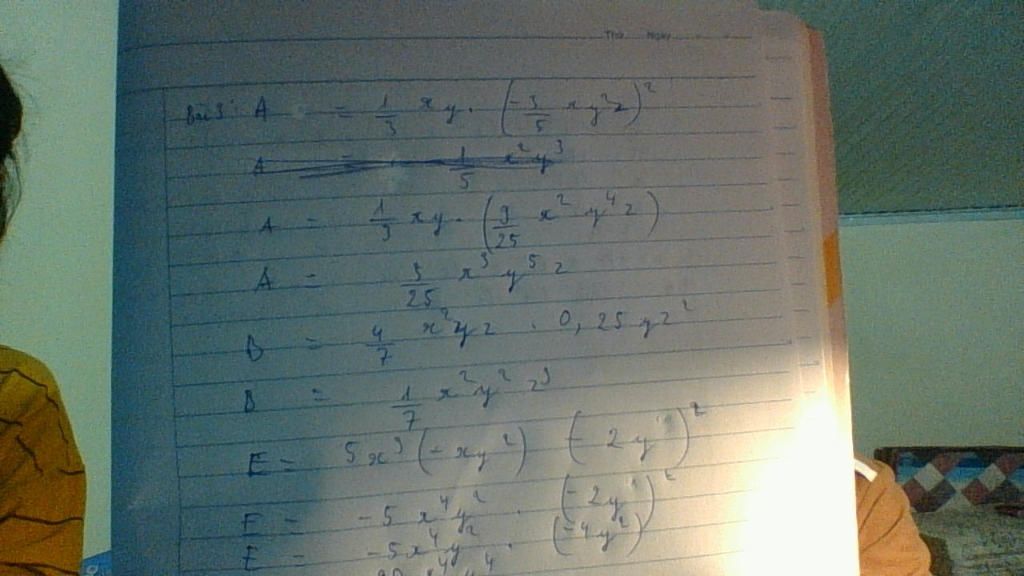 Thứ Ngày
Bài 3: A = 1/3 xy. (-3/5 xy²z)²
A = 1/5 x²y³
A = 1/3 xy. (9/25 x² y⁴ z)
A = 3/25 x³ y⁵ z
B = 4/7 x²yz . 0,25 yz²
B = 1/7 x²y² z³
E = 5x³ (-xy²) (-2y)²
E = -5 x⁴y² . (-2y)²
E = -5x⁴y² . (-4y²)